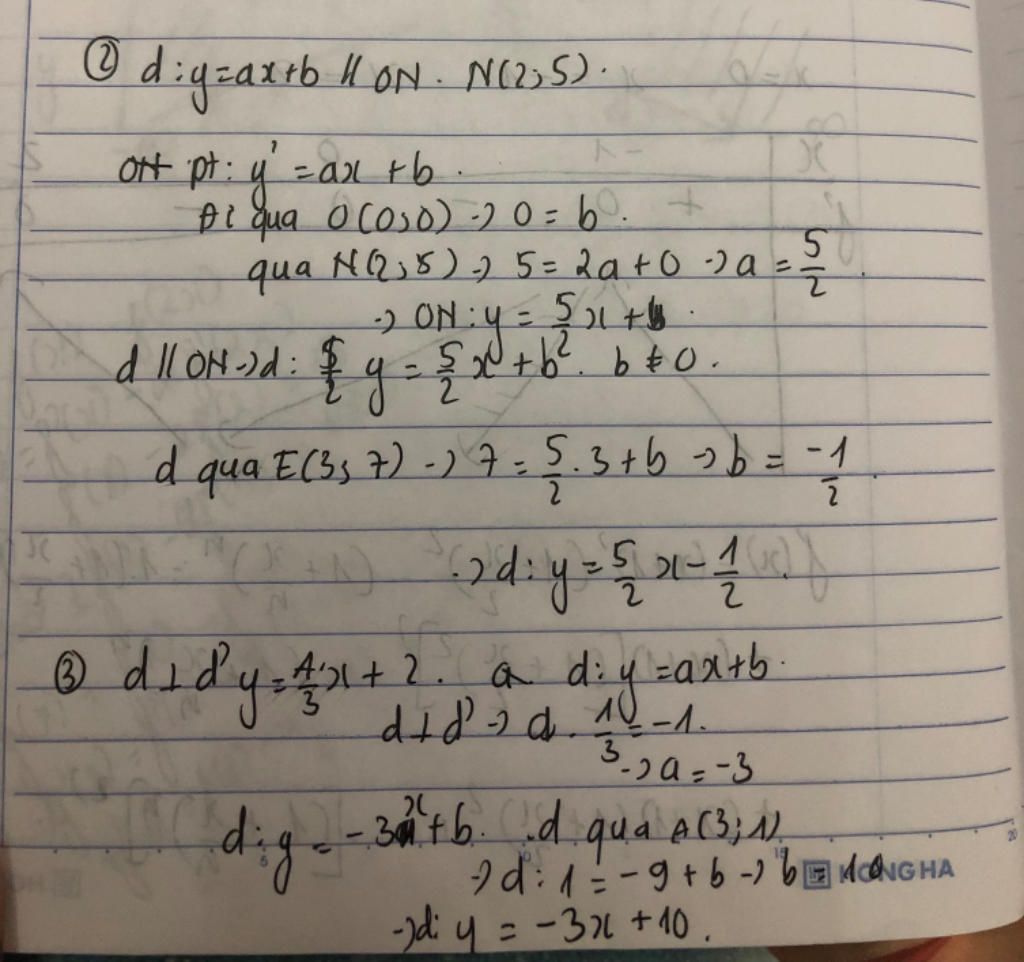 ② d: y=ax+b // ON. N(2;5).
ON pt: y' = ax + b.
Đi qua O(0;0) → 0 = b.
qua N(2;5) → 5 = 2a + 0 → a = 5/2.
→ ON: y = 5/2 x +
d // ON → d: y = 5/2 x + b. b ≠ 0.
d qua E(3;7) → 7 = 5/2 . 3 + b → b = -1/2.
→ d: y = 5/2 x - 1/2.
③ d ⊥ d' y = 1/3 x + 2. d: y = ax + b.
d ⊥ d' → a . 1/3 = -1.
→ a = -3
d: y = -3x + b. d qua A(3;1)
→ d: 1 = -9 + b → b = 10
HONG HA
→ d: y = -3x + 10.